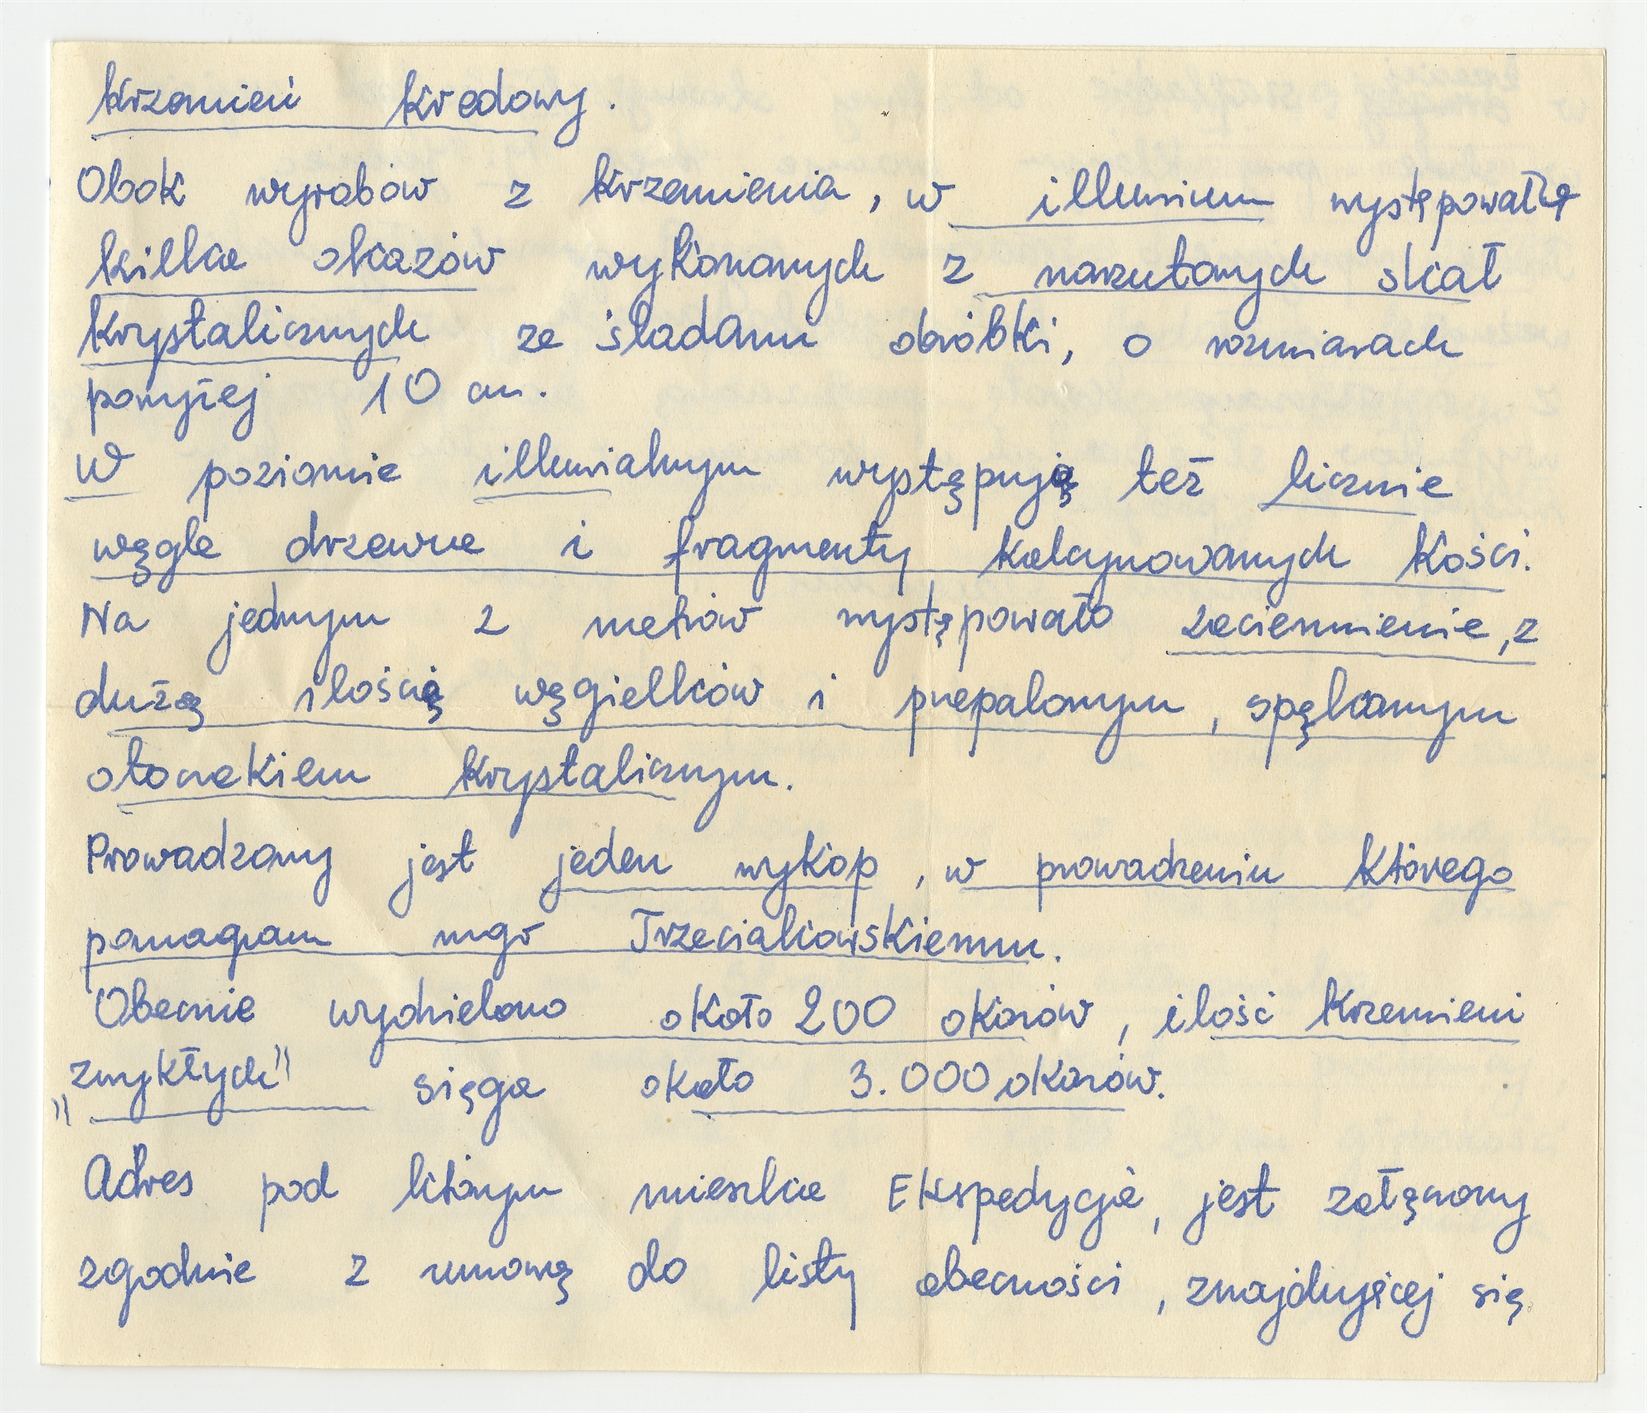 krzemień kredowy.
Obok wyrobów z krzemienia, w illuvium występowało
kilka okazów wykonanych z narzutowych skał
krystalicznych ze śladami obróbki, o rozmiarach
powyżej 10 cm.
W poziomie illuvialnym występują też licznie
węgle drzewne i fragmenty kalcynowanych kości.
Na jednym z metrów występowało zaciemnienie, z
dużą ilością węgielków i przepalonym, spękanym
otoczakiem krystalicznym.
Prowadzony jest jeden wykop, w prowadzeniu którego
pomagam mgr Trzeciakowskiemu.
Obecnie wydzielono około 200 okazów, ilość krzemieni
„zwykłych" sięga około 3.000 okazów.
Adres pod którym mieszka Ekspedycja, jest załączony
zgodnie z umową do listy obecności, znajdującej się